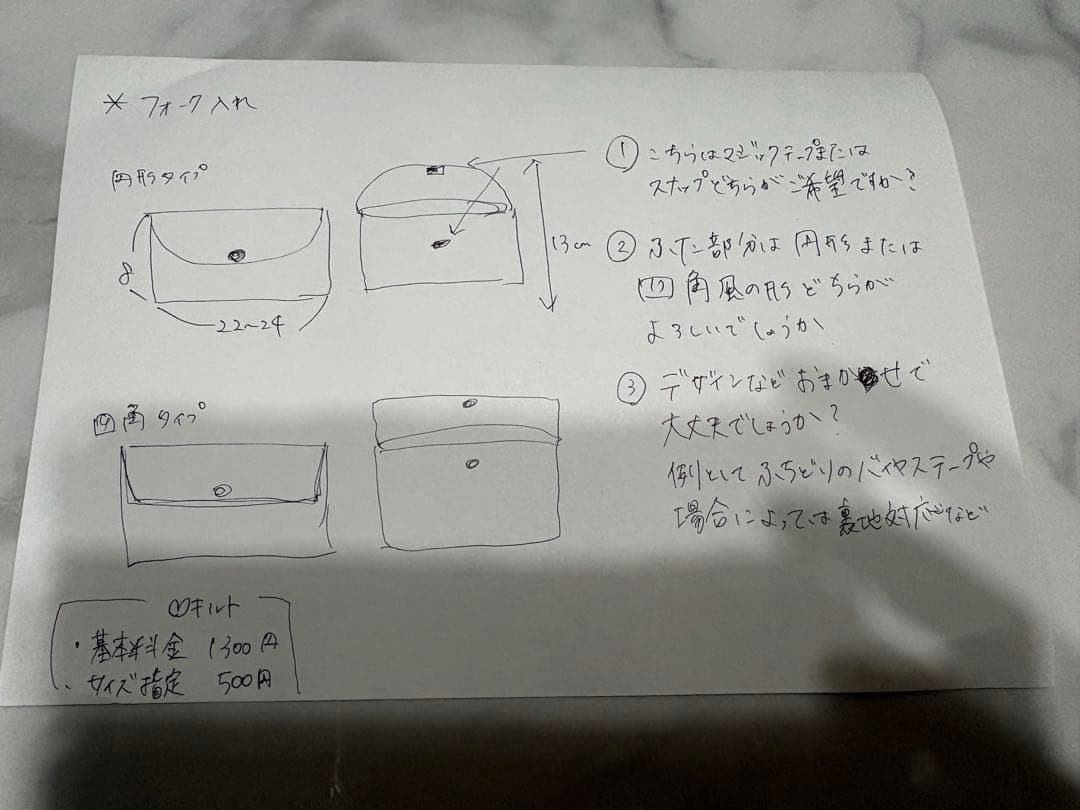 * フォーク入れ
円形タイプ
8
22~24
13cm
四角タイプ
① こちらはマジックテープまたは
スナップどちらがご希望ですか?
② ふた部分は円形または
四角風の形どちらが
よろしいでしょうか
③ デザインなどおまかせで
大丈夫でしょうか?
例としてふちどりのバイヤステープや
場合によっては裏地対応など
①キルト
・基本料金 1300円
・サイズ指定 500円